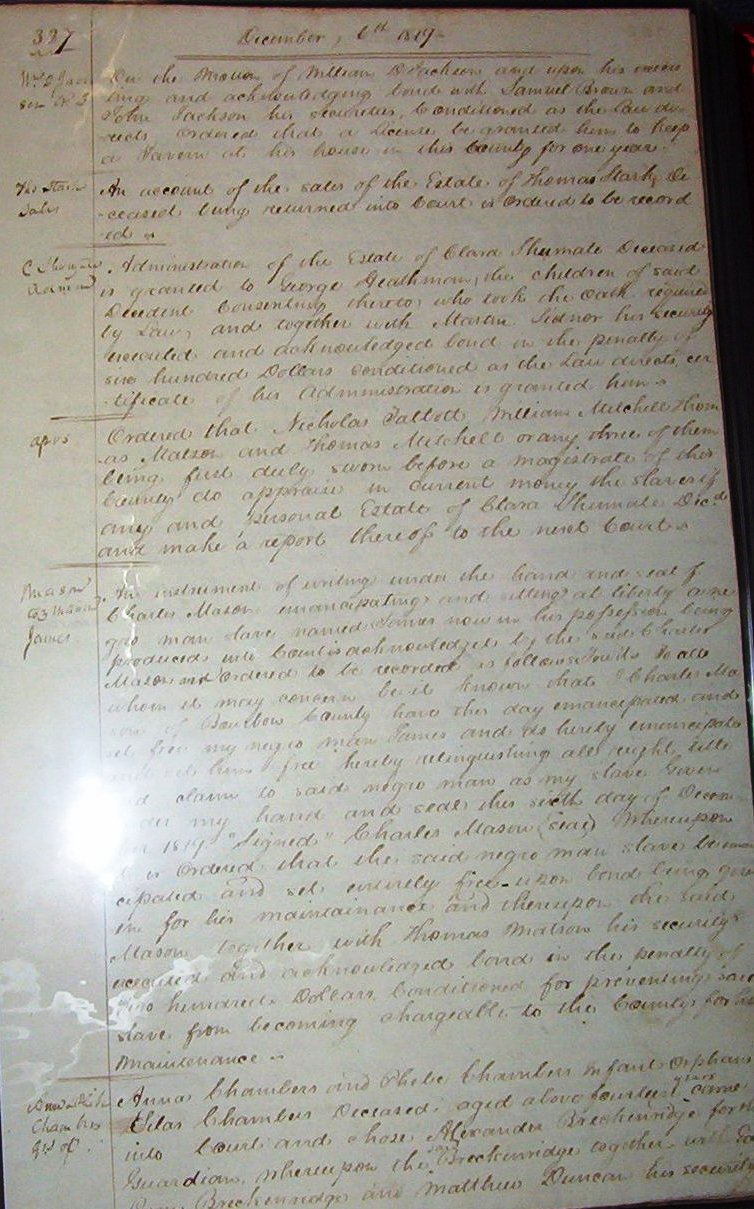 337
December, 6th 1819
On the Motion of William D Jackson and upon his execu
ting and acknowledging bond with Samuel Brown and
John Jackson his securities, Conditioned as the Law di
rects Ordered that a License be granted him to keep
a Tavern at his house in this County for one year.
Tho Stark
Sales
An account of the sales of the Estate of Thomas Stark De
ceased being returned into Court is ordered to be record
ed
Administration of the Estate of Clara Shumate Deceased
is granted to George Heathman, the children of said
Decedent Consenting thereto, who took the Oath required
by Law, and together with Martin his security
executed and acknowledged bond in the penalty of
six hundred Dollars conditioned as the Law directs cer
tificate of his Administration is granted him
aprs
Ordered that Nicholas Talbott, William Mitchell Thom
as Matson and Thomas Mitchell or any three of them
being first duly sworn before a magistrate of this
County do appraise in current money the slaves if
any and personal Estate of Clara Shumate Dec.d
and make a report thereof to the next Court
Mason
James
An instrument of writing under the hand and seal of
Charles Mason emancipating and setting at liberty a ne
gro man slave named James now in his possession being
produced into Court is acknowledged by the said Charles
Mason and ordered to be recorded as follows Towit. To all
whom it may concern be it known that I Charles Ma
son of Bourbon County have this day emancipated and
set free my negro man James and do hereby emancipate
and set him free hereby relinquishing all right title
claim to said negro man as my slave Given
my hand and seal this sixth day of Decem
1819 "Signed" Charles Mason (seal) Whereupon
is Ordered that the said negro man slave be eman
cipated and set entirely free upon bond being giv
en for his maintainance and thereupon the said
Mason together with Thomas Matson his security
executed and acknowledged bond in the penalty of
hundred Dollars Conditioned for preventing said
slave from becoming chargeable to the County for his
maintenance
Chambers
Anna Chambers and Phebe Chambers infant orphans
Silas Chambers Deceased aged above fourteen years came
into Court and chose Alexander Breckenridge for their
Guardian, whereupon the said Breckenridge together with
Breckenridge and Matthew Duncan his security